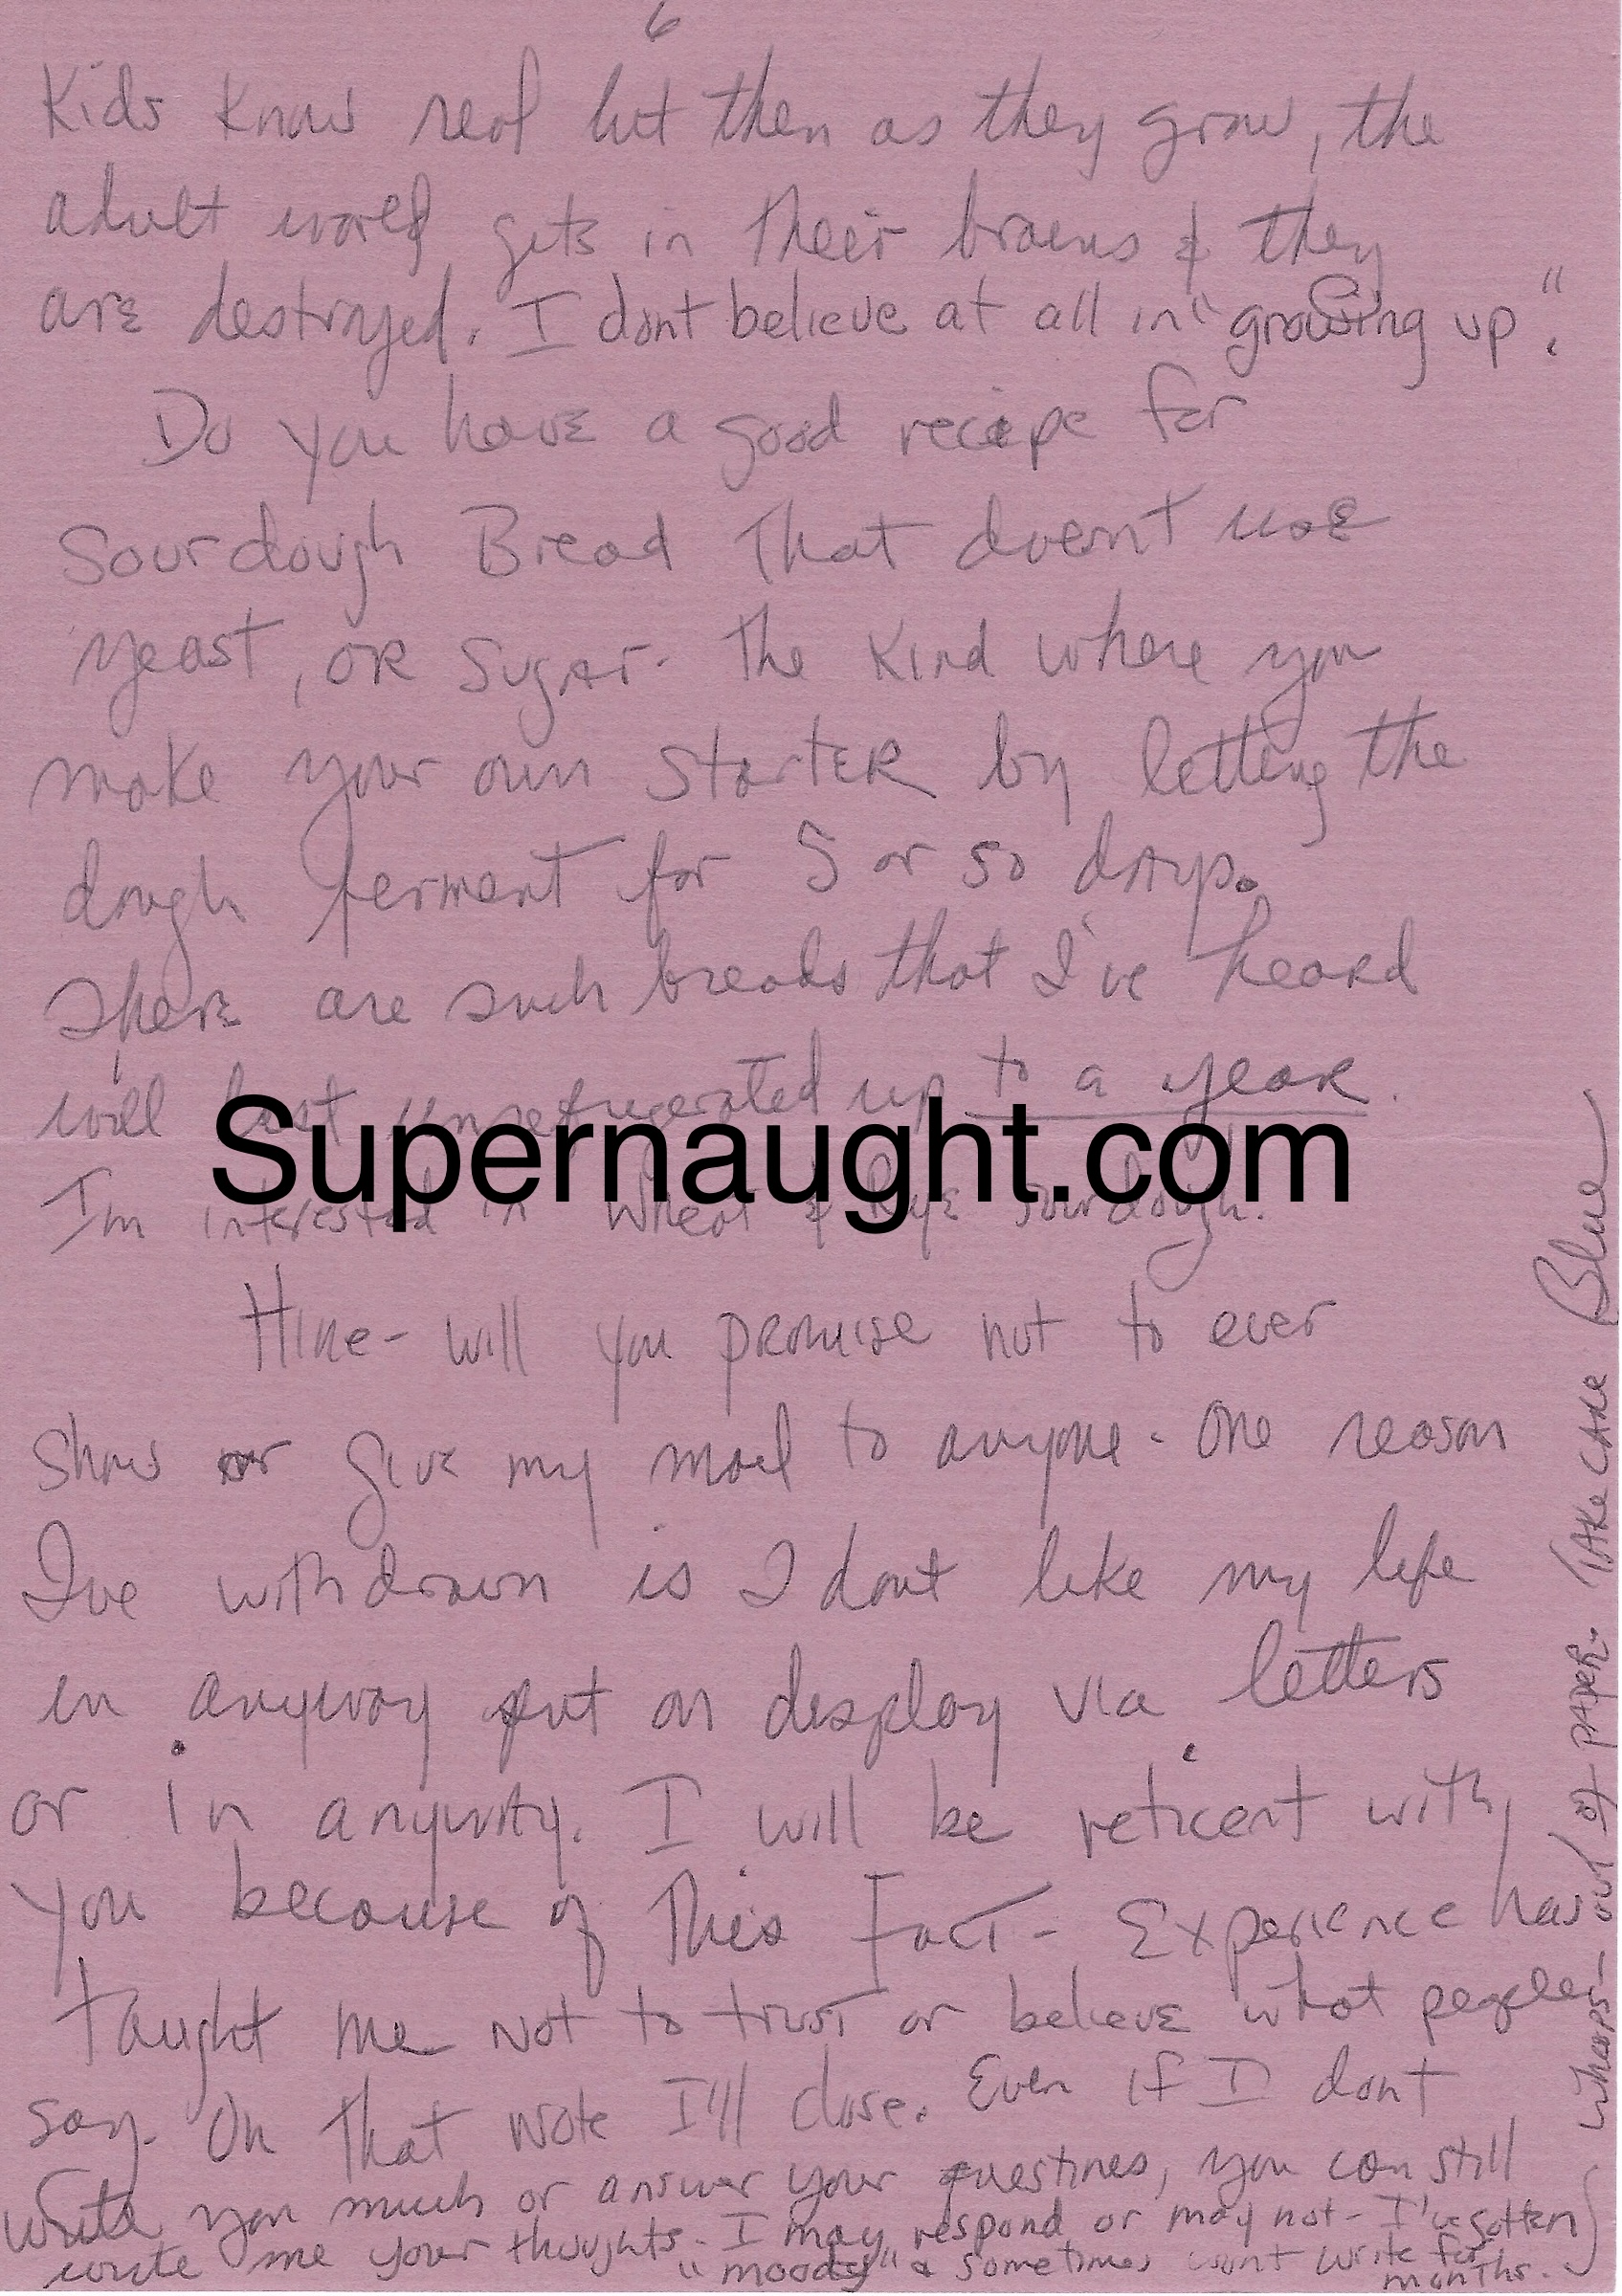 6
Kids know real but then as they grow, the
adult world gets in their brains & they
are destroyed. I dont believe at all in "growing up".
Do you have a good recipe for
Sourdough Bread that doesn't use
yeast, OR Sugar. The Kind where you
make your own starter by letting the
dough ferment for 5 or so days.
There are such breads that I've heard
will last unrefrigerated up to a year.
Supernaught.com
I'm interested in Wheat & Rye Sourdough.
will you promise not to ever
show or give my mail to anyone. One reason
Ive withdrawn is I dont like my life
in anyway put on display via letters
or in anyway. I will be reticent with
you because of This Fact - Experience has
taught me not to trust or believe what people
say. On that note I'll close. Even if I dont
write you much or answer your questines, you can still
write me your thoughts. I may respond or may not - I've gotten
"moody" & sometimes wont write for
months.
Whoops! out of paper. Take Care Blue